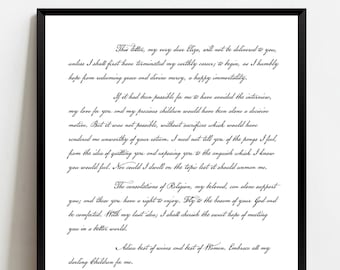 This letter, my very dear Eliza, will not be delivered to you,
unless I shall first have terminated my earthly career; to begin, as I humbly
hope from redeeming grace and divine mercy, a happy immortality.
If it had been possible for me to have avoided the interview,
my love for you and my precious children would have been alone a decisive
motive. But it was not possible, without sacrifices which would have
rendered me unworthy of your esteem. I need not tell you of the pangs I feel,
from the idea of quitting you and exposing you to the anguish which I know
you would feel. Nor could I dwell on the topic lest it should unman me.
The consolations of Religion, my beloved, can alone support
you; and these you have a right to enjoy. Fly to the bosom of your God and
be comforted. With my last idea; I shall cherish the sweet hope of meeting
you in a better world.
Adieu best of wives and best of Women. Embrace all my
darling Children for me.